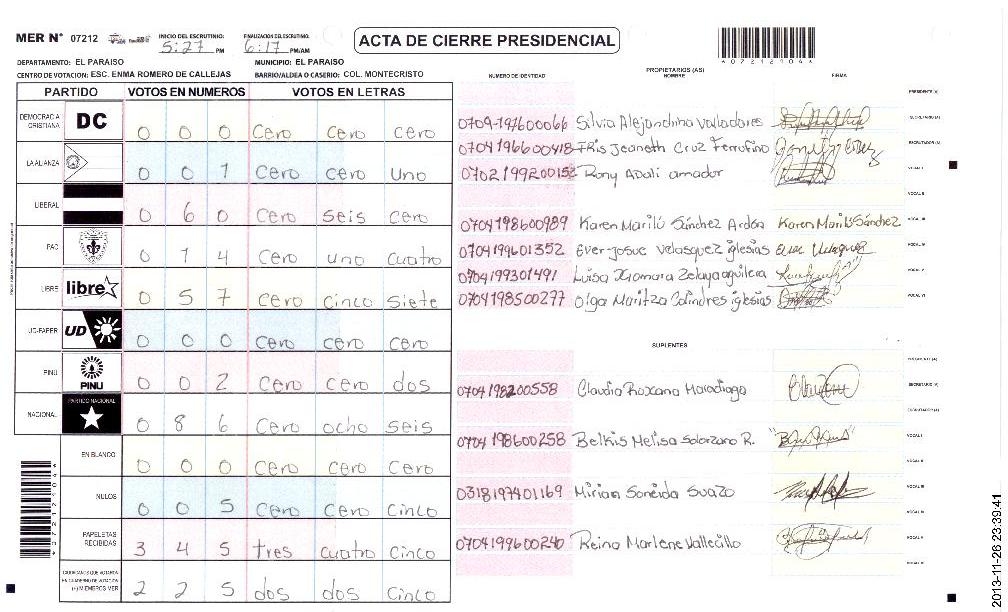 MER N° 07212 INICIO DEL ESCRUTINIO: 5:27 PM FINALIZACION DEL ESCRUTINIO: 6:17 PM/AM ACTA DE CIERRE PRESIDENCIAL
DEPARTAMENTO: EL PARAISO MUNICIPIO: EL PARAISO
CENTRO DE VOTACION: ESC. ENMA ROMERO DE CALLEJAS BARRIO/ALDEA O CASERIO: COL. MONTECRISTO
PARTIDO VOTOS EN NUMEROS VOTOS EN LETRAS
DEMOCRACIA CRISTIANA DC 0 0 0 Cero Cero cero
LA ALIANZA 0 0 1 Cero cero uno
LIBERAL 0 6 0 Cero seis cero
PAC 0 1 4 Cero uno cuatro
LIBRE libre 0 5 7 Cero Cinco Siete
UD-FAPER UD 0 0 0 Cero cero cero
PINU PINU 0 0 2 Cero cero dos
NACIONAL PARTIDO NACIONAL 0 8 6 Cero ocho seis
EN BLANCO 0 0 0 Cero Cero Cero
NULOS 0 0 5 Cero Cero Cinco
PAPELETAS RECIBIDAS 3 4 5 tres cuatro Cinco
CIUDADANOS QUE VOTARON EN CUADERNO DE VOTACION (+) MIEMBROS MER 2 2 5 dos dos Cinco
NUMERO DE IDENTIDAD PROPIETARIOS (AS) NOMBRE FIRMA
PRESIDENTE(A)
0709-197600066 Silvia Alejandrina Valladores SECRETARIO(A)
0704196600418 Iris Jeaneth Cruz Ferrufino ESCRUTADOR(A)
0702199200152 Rony Adali amador VOCAL I
VOCAL II
0704198600989 Karen Marilú Sánchez Ardón Karen Marilú Sánchez VOCAL III
0704199601352 Ever Josue Velasquez iglesias VOCAL IV
0704199301491 Luisa Xiomara Zelaya aguilera VOCAL V
0704198500277 Olga Maritza Colindres iglesias VOCAL VI
SUPLENTES
PRESIDENTE(A)
0704198200558 Claudia Roxana Maradiaga SECRETARIO(A)
ESCRUTADOR(A)
0704198600258 Belkis Melisa Solorzano R. VOCAL I
VOCAL II
0318197401169 Mirian Soneida Suazo VOCAL III
VOCAL IV
0704199600240 Reina Marlene Vallecillo VOCAL V
VOCAL VI
2013-11-26 23:39:41